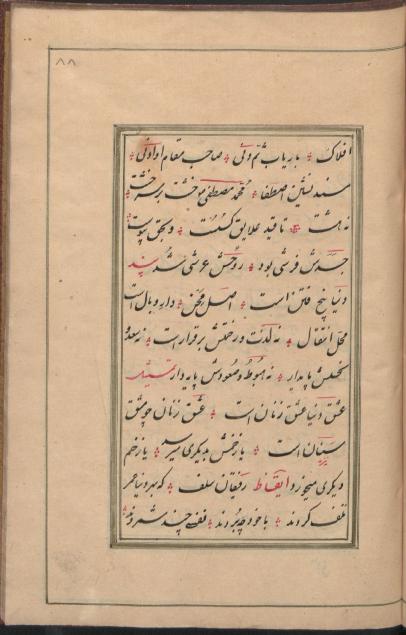 ۸۸
افلاک ؞ باریاب ثم دنی ؞ صاحب مقام او ادنی ؞
مسند نشین اصطفا ؞ محمد مصطفی موخت بر سرخشت
نه هشت ؞ تا قید علایق گسست ؞ و بحق پیوست
جسدش فرشی بود ؞ روحش عرشی شد پند
دنیا پنج فتن است ؞ اصل محن ؞ دار وبال است
محل انتقال ؞ نه لذت و رختش برقرار است ؞ نه سعد و
نحسش پایدار ؞ نه هبوط و صعودش پایه دار تمثیل
عشق دنیا عشق زنان است ؞ عشق زنان چو عشق
سنان است ؞ یا زخمش بدیگری میرسد ؞ یا زخم
دیگری میخورد ایقاظ رفیقان سلف ؞ که بهر دنیا عمر
تلف کردند ؞ با خود چه بردند ؞ نفسی چند شمردند